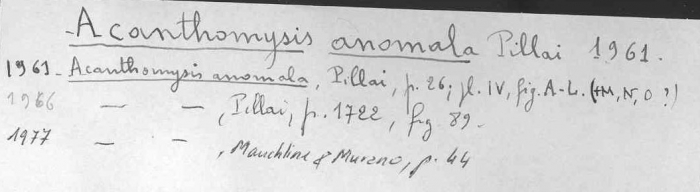 - Acanthomysis anomala Pillai 1961.
1961 - Acanthomysis anomala, Pillai, p. 26; pl. IV, fig. A-L. (+M, N, O ?)
1966 — — , Pillai, p. 1722, fig 89.
1977 — — , Mauchline & Murano, p. 44